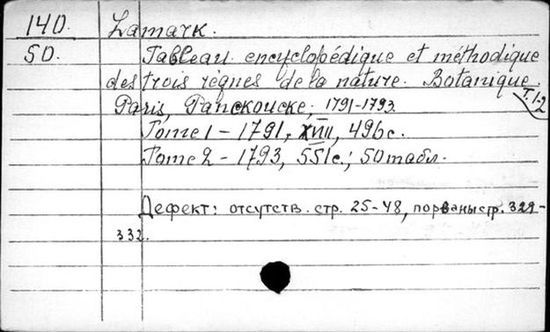 140. Lamark.
50. Tableau encyclopédique et méthodique
des trois règnes de la nature. Botanique.
T. 1-2
Paris, Panckoucke, 1791-1793.
Tome 1 – 1791, XVIII, 496 c.
Tome 2 – 1793, 551 c.; 50 табл.
Дефект: отсутств. стр. 25-48, порваны стр. 329-
332.